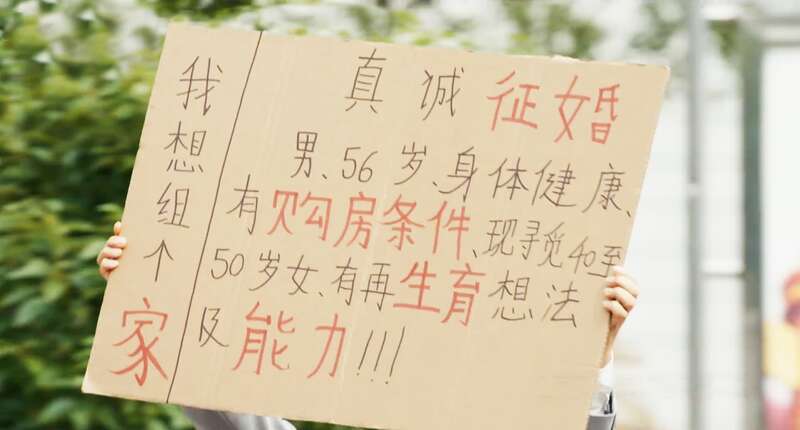 我想组个家
真诚征婚
男、56岁、身体健康、
有购房条件、现寻觅40至
50岁女、有再生育想法
及能力!!!